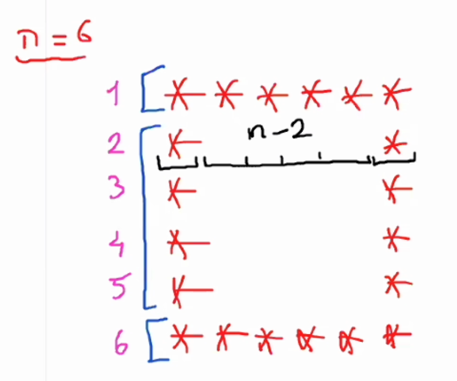 n = 6
1 [ * * * * * *
2 [ * n-2 *
3 * *
4 * *
5 * *
6 [ * * * * * *